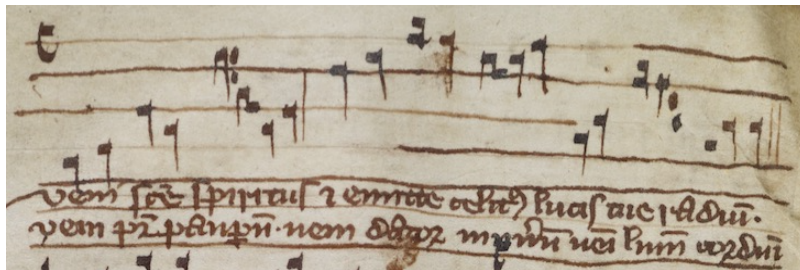 veni sce spiritus ⁊ emitte celit⁹ lucis tue radiū.
veni pr̄ paupū. veni dator munerū veni lumē cordiū